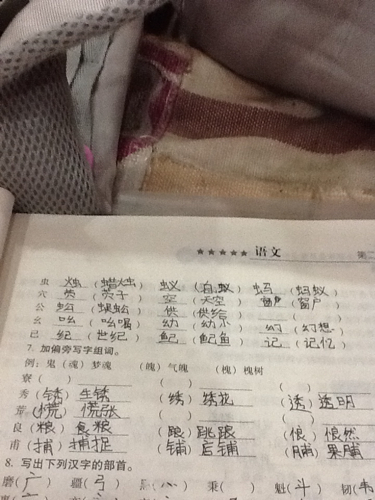 ★★★★★ 语文 第二
虫 烛 (蜡烛) 蚁 (白蚁) 蚂 (蚂蚁)
穴 (茓子) 空 (天空) 窗 (窗户)
公 蚣 (蜈蚣) 供 (供给) ( )
幺 吆 (吆喝) 幼 (幼小) 幻 (幻想)
已 纪 (世纪) 鱾 (鱾鱼) 记 (记忆)
7. 加偏旁写字组词。
例:鬼 (魂) 梦魂 (魄) 气魄 (槐) 槐树
寮 ( ) ( ) ( )
秀 (锈) 生锈 (绣) 绣花 (透) 透明
荒 (慌) 慌张 ( ) ( )
良 (粮) 食粮 (踉) 跳踉 (悢) 悢然
甫 (捕) 捕捉 (铺) 店铺 (脯) 果脯
8. 写出下列汉字的部首。
磨 (广) 疆 (弓) 忌 (心) 秉 ( ) 魁 (斗) 韧 (韦